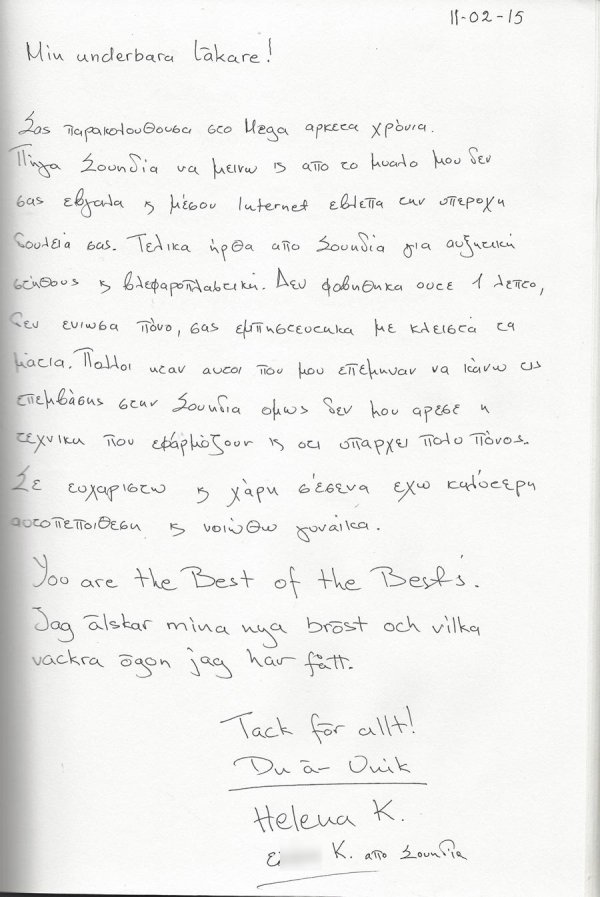 11-02-15
Min underbara läkare!
Σας παρακολουθουσα στο Mega αρκετα χρόνια.
Πήγα Σουηδία να μεινω ϗ απο το μυαλο μου δεν
σας εβγαλα ϗ μέσου Internet εβλεπα την υπεροχη
δουλεία σας. Τελικα ήρθα απο Σουηδία για αυξητική
στήθους ϗ βλεφαροπλαστική. Δεν φοβηθηκα ουσε 1 λεπτο,
δεν ενιωσα πόνο, σας εμπηστευτηκα με κλειστά τα
μάτια. Πολλοι ηταν αυτοι που μου επέμηναν να κάνω τις
επεμβάσης στην Σουηδια ομως δεν μου αρεσε η
τεχνικη που εφάρμόζουν ϗ οτι υπαρχει πολυ πόνος..
Σε ευχαριστω ϗ χάρη σ'εσενα εχω καλύτερη
αυτοπεποιθεση ϗ νοιώθω γυναίκα.
You are the Best of the Bests.
Jag älskar mina nya bröst och vilka
vackra ögon jag har fått.
Tack för allt!
Du är Unik
Helena K.
Ει K. απο Σουηδία